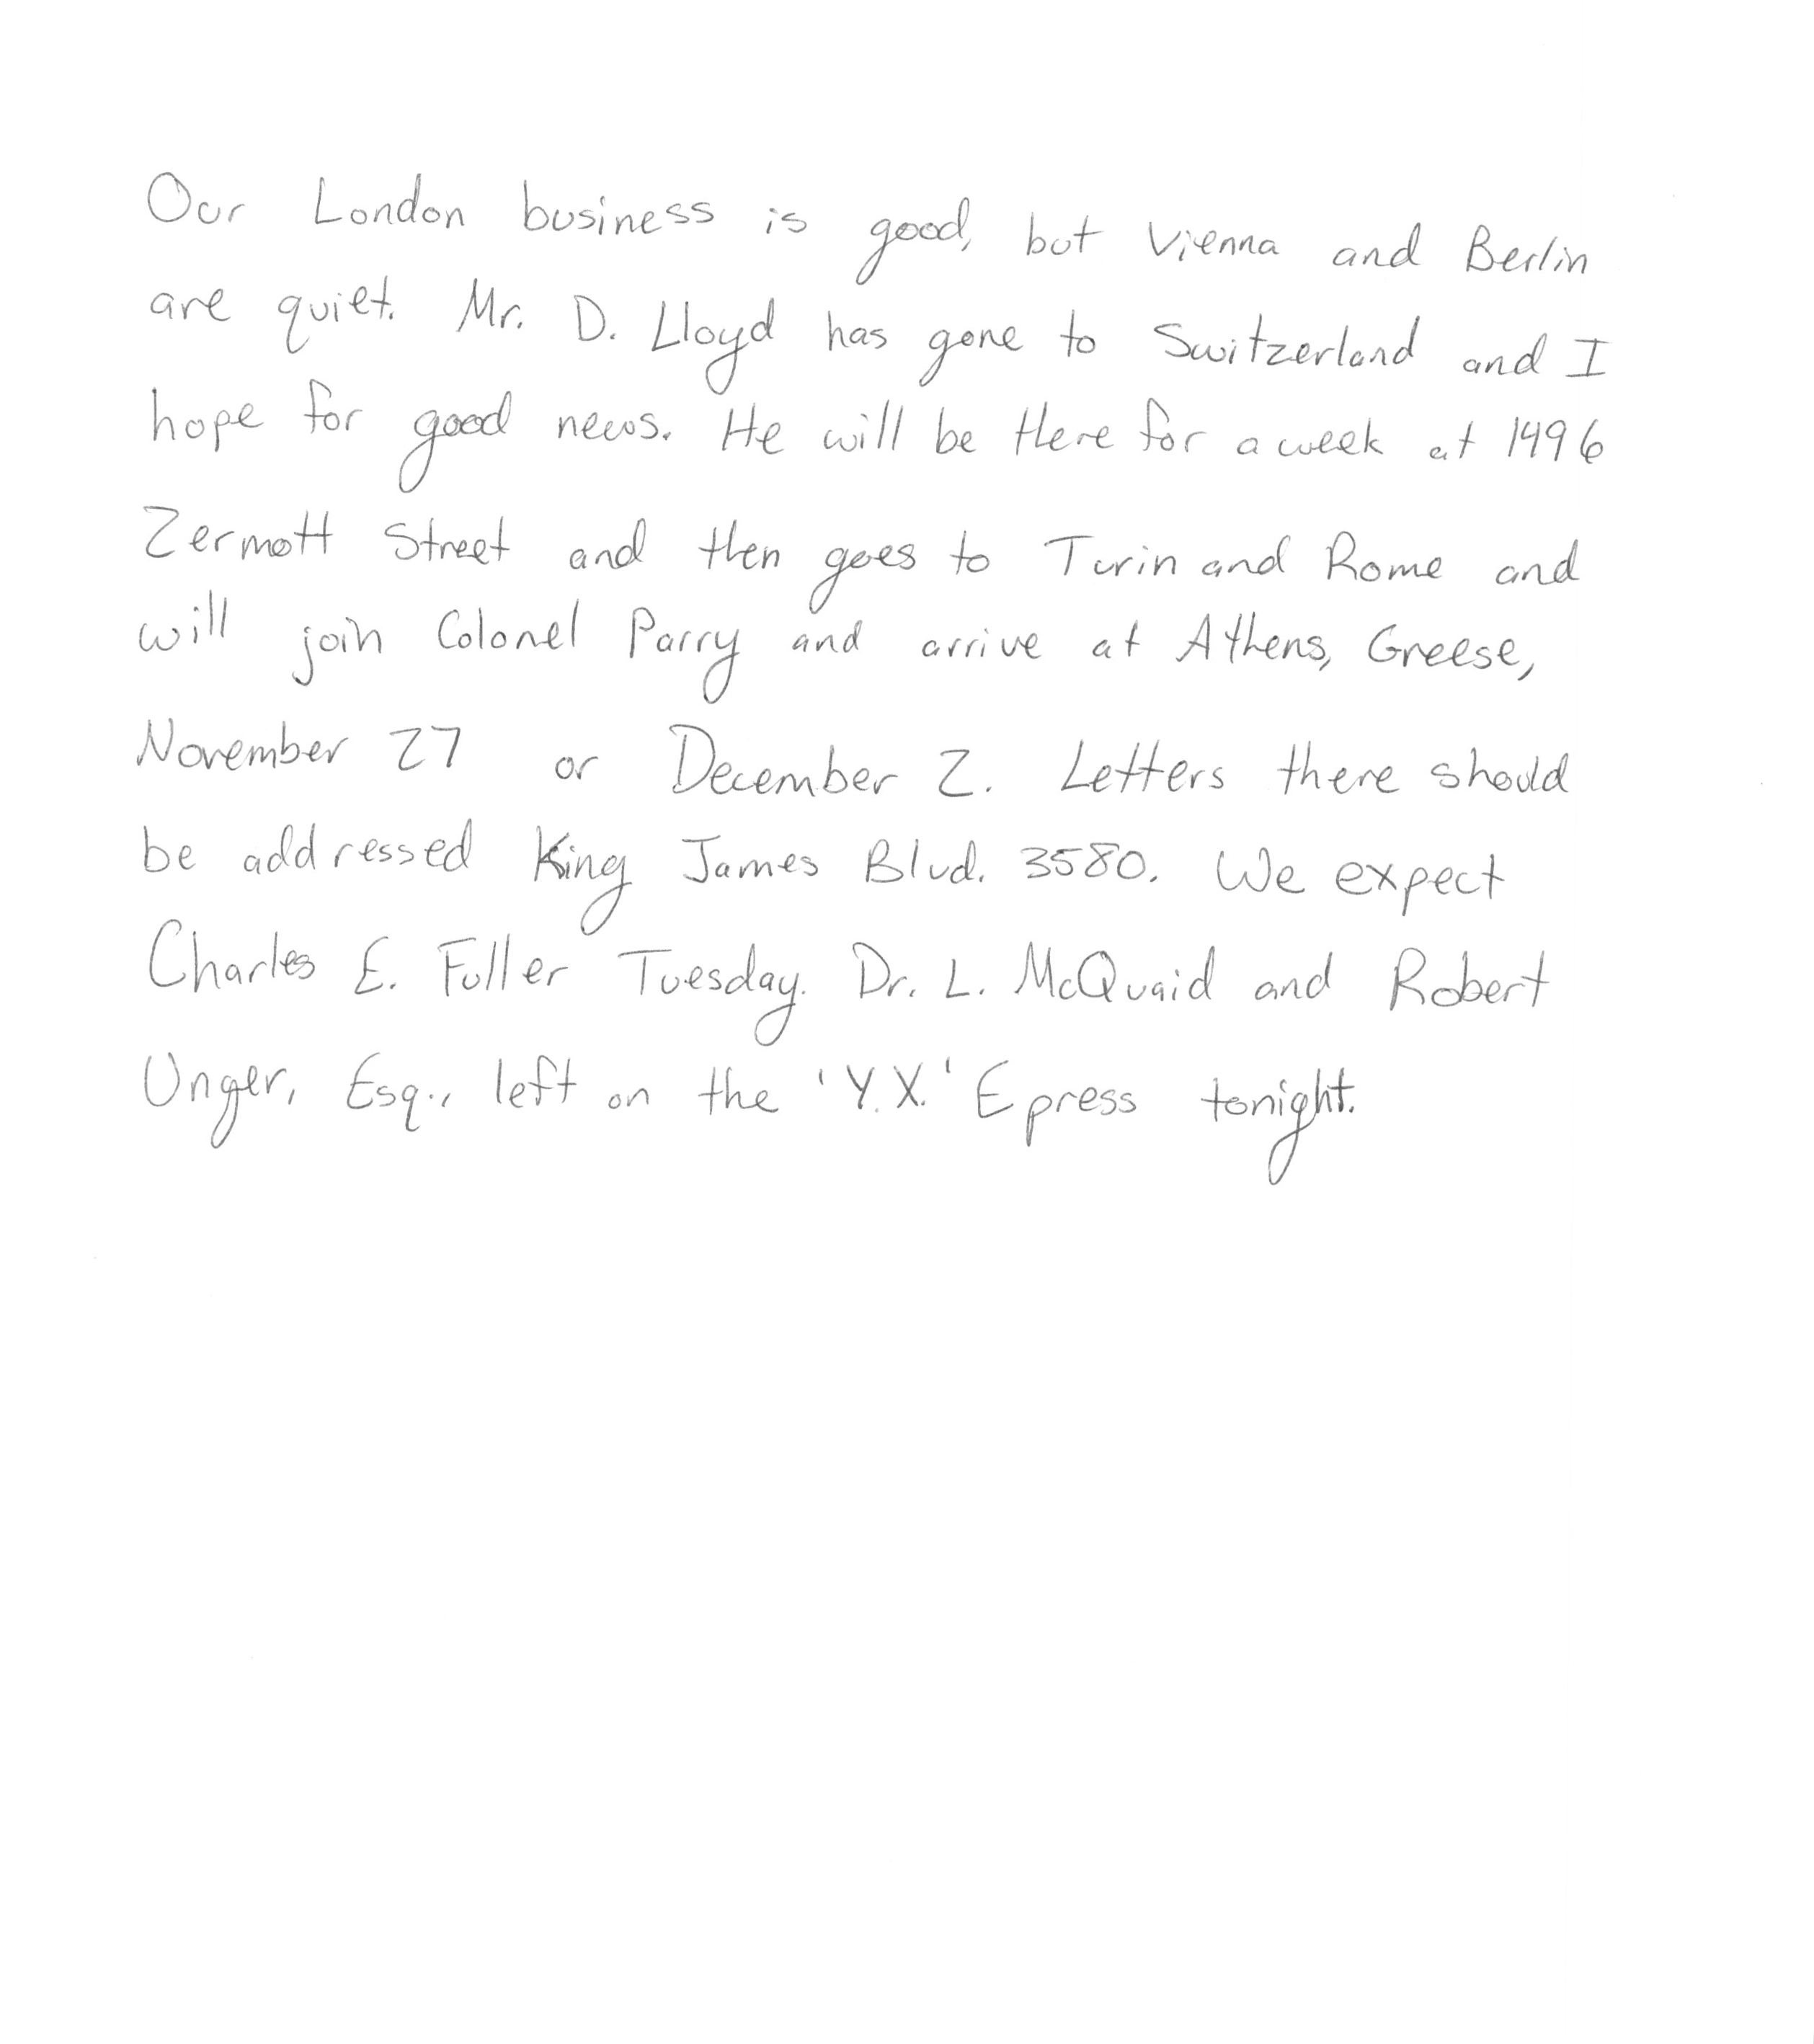 Our London business is good, but Vienna and Berlin
are quiet. Mr. D. Lloyd has gone to Switzerland and I
hope for good news. He will be there for a week at 1496
Zermott Street and then goes to Turin and Rome and
will join Colonel Parry and arrive at Athens, Greese,
November 27 or December 2. Letters there should
be addressed King James Blvd. 3580. We expect
Charles E. Fuller Tuesday. Dr. L. McQuaid and Robert
Unger, Esq., left on the 'Y.X.' Epress tonight.